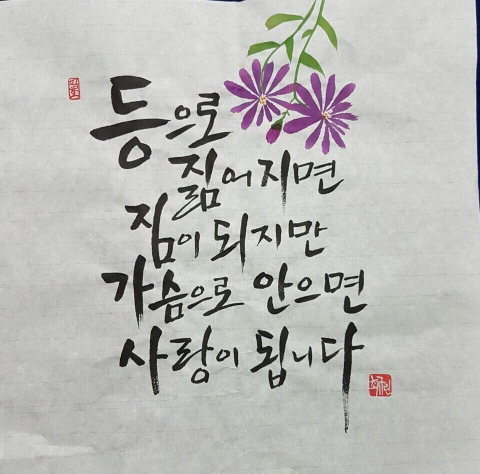 등으로
짊어지면
짐이 되지만
가슴으로 안으면
사랑이 됩니다